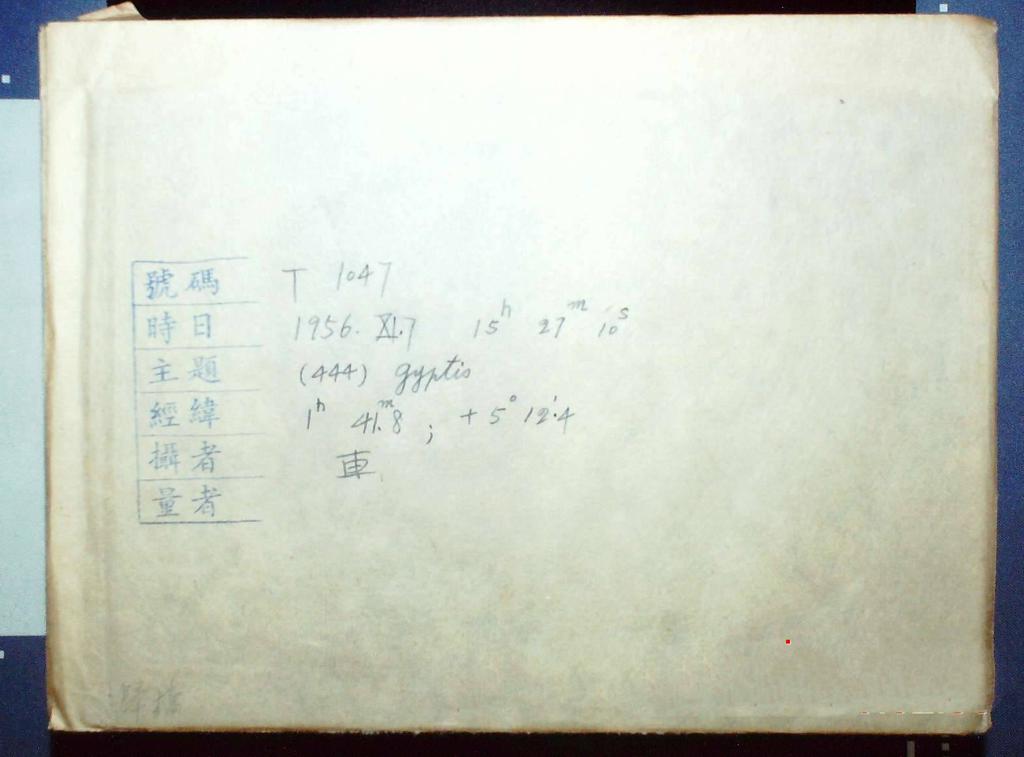 號碼 T 1047
時日 1956. XI.7 15h 27m 10s
主題 (444) gyptis
經緯 1h 41m.8 ; + 5° 12'.4
攝者 車
量者